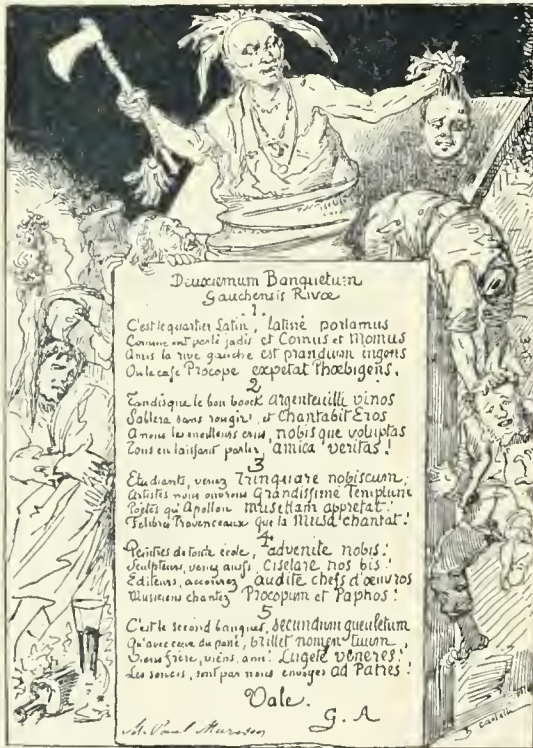 Deuxiemum Banquetum
Gauchensis Rivæ
1.
C'est le quartier Latin, latine parlamus
Comme ont parlé jadis et Comus et Momus
Amis la rive gauche est prandium ingens
Ou le café Procope expetat Phœbigens.
2
Tandis que le bon boock Argenteuilli vinos
Sablera sans rougir, et Chantabit Eros
A nous les meilleurs crus, nobisque voluptas
Tous en laissant parler, amica veritas!
3
Etudiants, venez Trinquare nobiscum,
Artistes nous ouvrons Grandissime Templum
Poëtes qu'Apollon musettam appretat!
Felibres Provenceaux que la Musa chantat!
4
Peintres de toute école, advenite nobis!
Sculpteurs, venez aussi, Ciselare nos bis!
Editeurs, accourez audite chefs d'œuvros
Musiciens chantez Procopum et Paphos!
5
C'est le second banquet, secundum gueuletum
Qu'avec ceux du passé, brillet nomen tuum,
Viens frère, viens, ami! Lugete veneres!
Les soucis, sont par nous envoyés ad Patres!
Vale.
G. A
M. Paul
B castelli